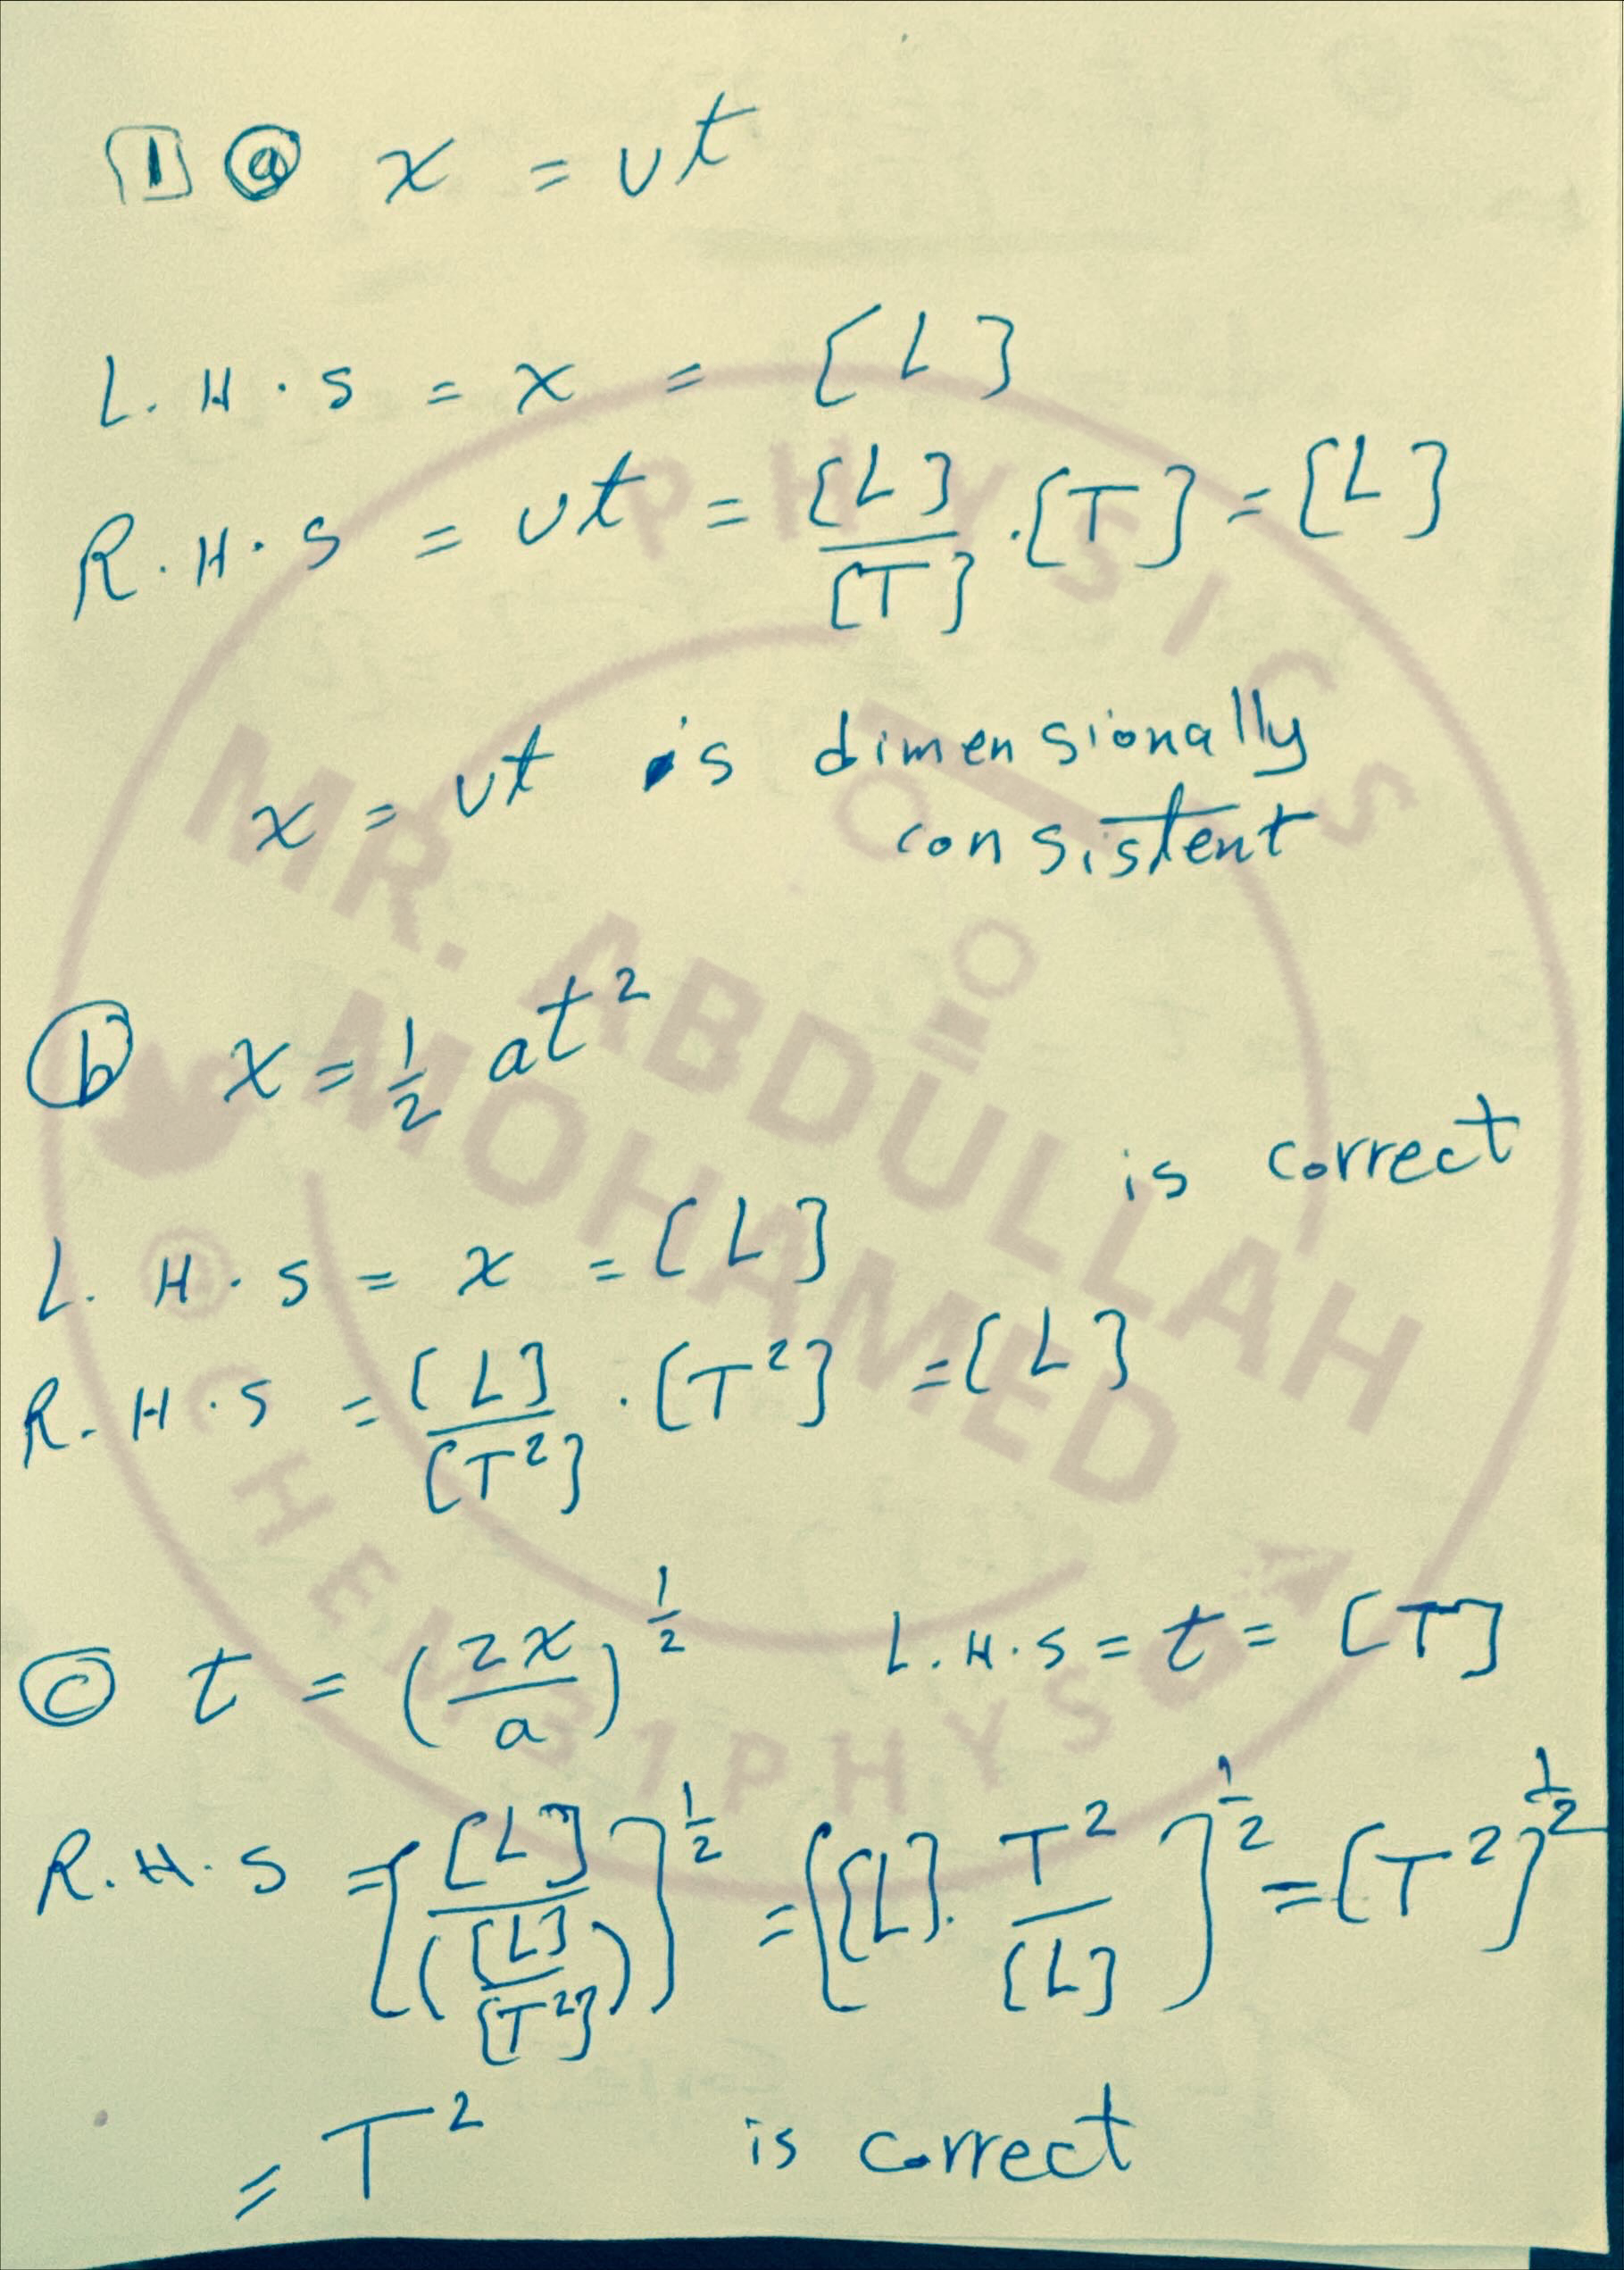 1 a x = vt
L.H.S = x = [L]
R.H.S = vt = [L]/[T] . [T] = [L]
x = vt is dimensionally
consistent
b x = 1/2 at²
is correct
L.H.S = x = [L]
R.H.S = [L]/[T²] . [T²] = [L]
c t = (2x/a)^1/2 L.H.S = t = [T]
R.H.S = [[L]/([L]/[T²])]^1/2 = [[L] . T²/[L]]^1/2 = [T²]^1/2
= T² is correct
PHYSICS
MR. ABDULLAH
MOHAMED